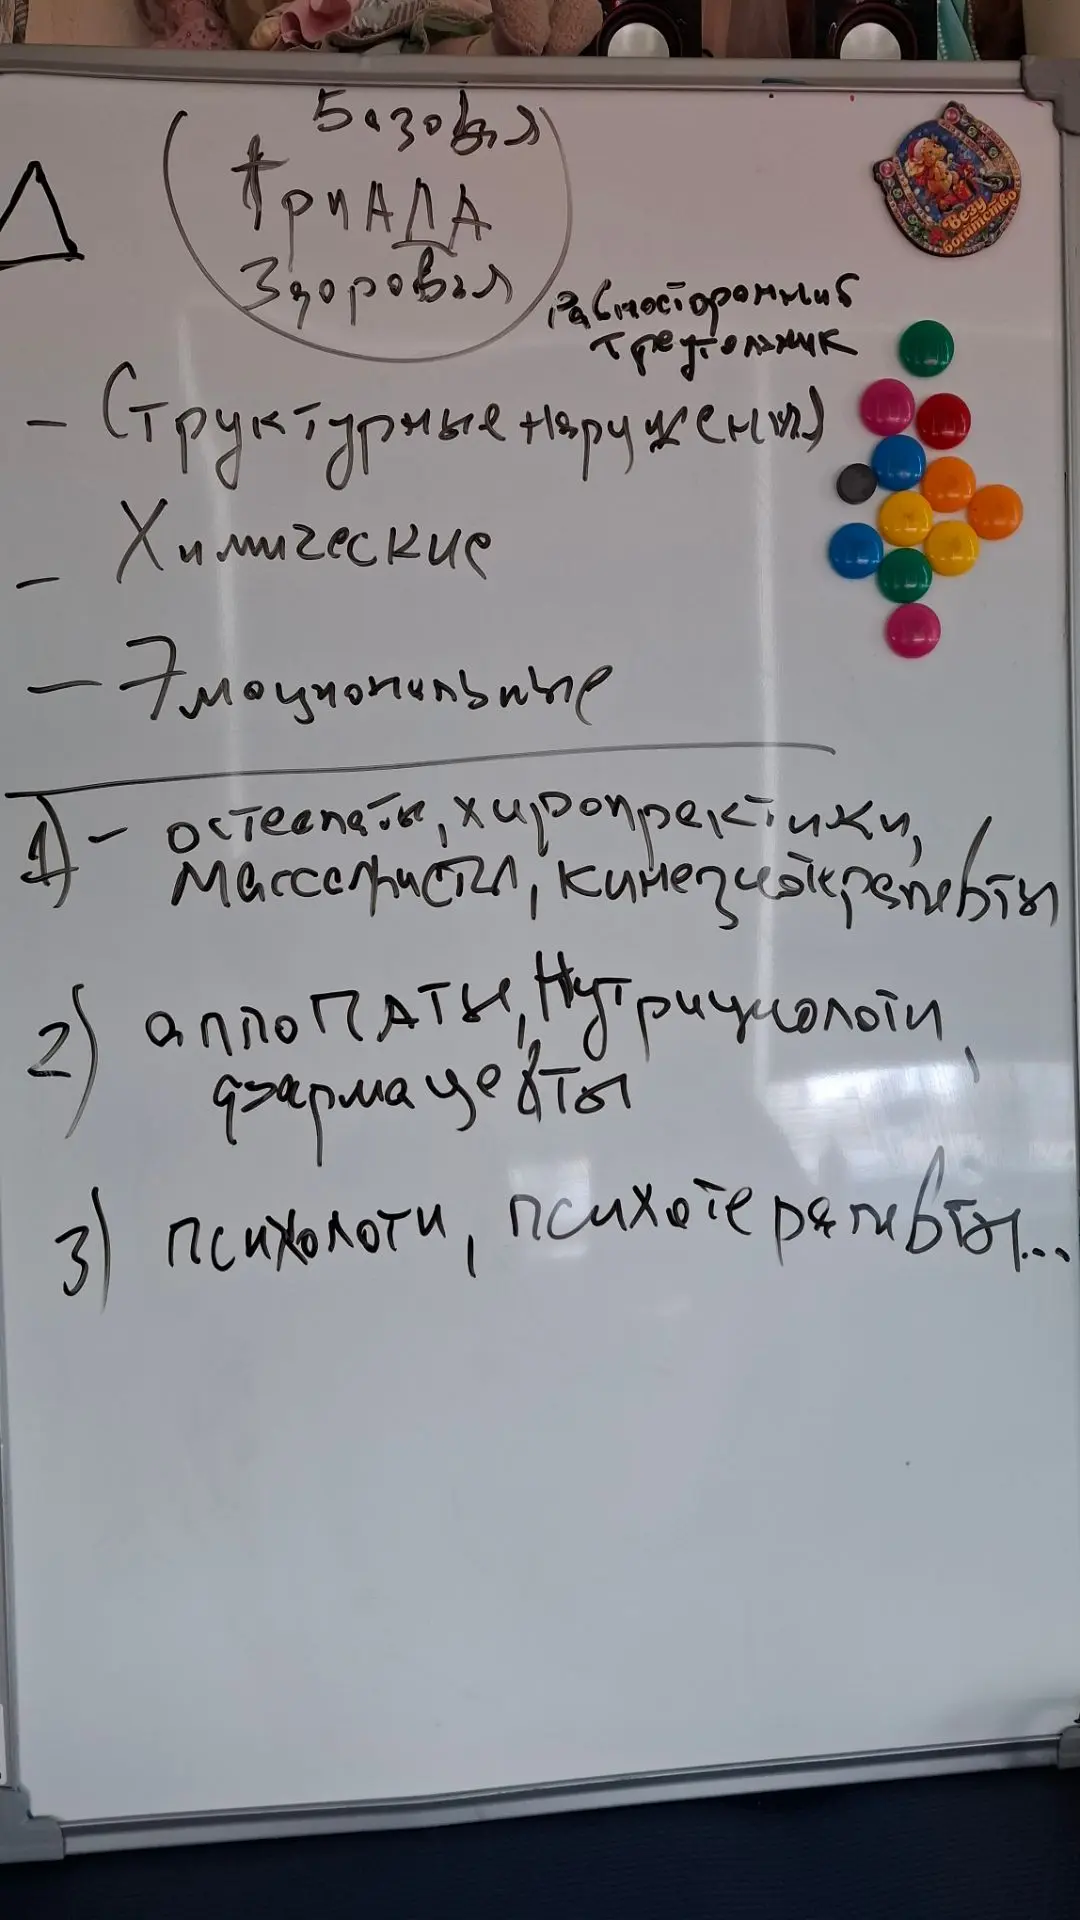 Базовая
триАДА
Здоровья
равносторонний
треугольник
- Структурные нарушения
- Химические
- Эмоциональные
1) - остеопаты, хиропрактики,
массажисты, кинезиотерапевты
2) аллоПАТЫ, Нутрициологи,
фармацевты
3) психологи, психотерапевты...
Везу
богатство